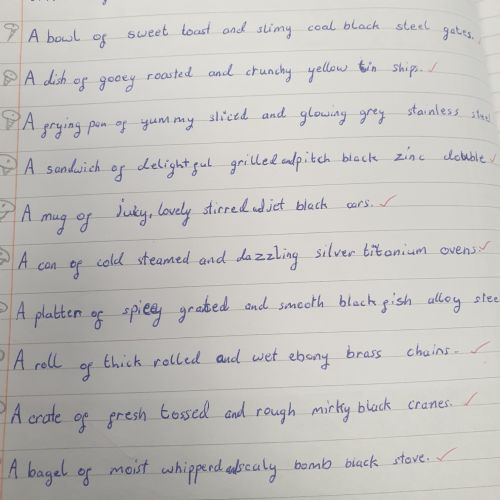 A bowl of sweet toast and slimy coal black steel gates.
A dish of gooey roasted and crunchy yellow tin ships.
A frying pan of yummy sliced and glowing grey stainless steel
A sandwich of delightful grilled and pitch black zinc double
A mug of juicy, lovely stirred and jet black cars.
A can of cold steamed and dazzling silver titonium ovens
A platter of spicey grated and smooth black fish alloy stee
A roll of thick rolled and wet ebony brass chains.
A crate of fresh tossed and rough mirky black cranes.
A bagel of moist whipperd and scaly bomb black stove.